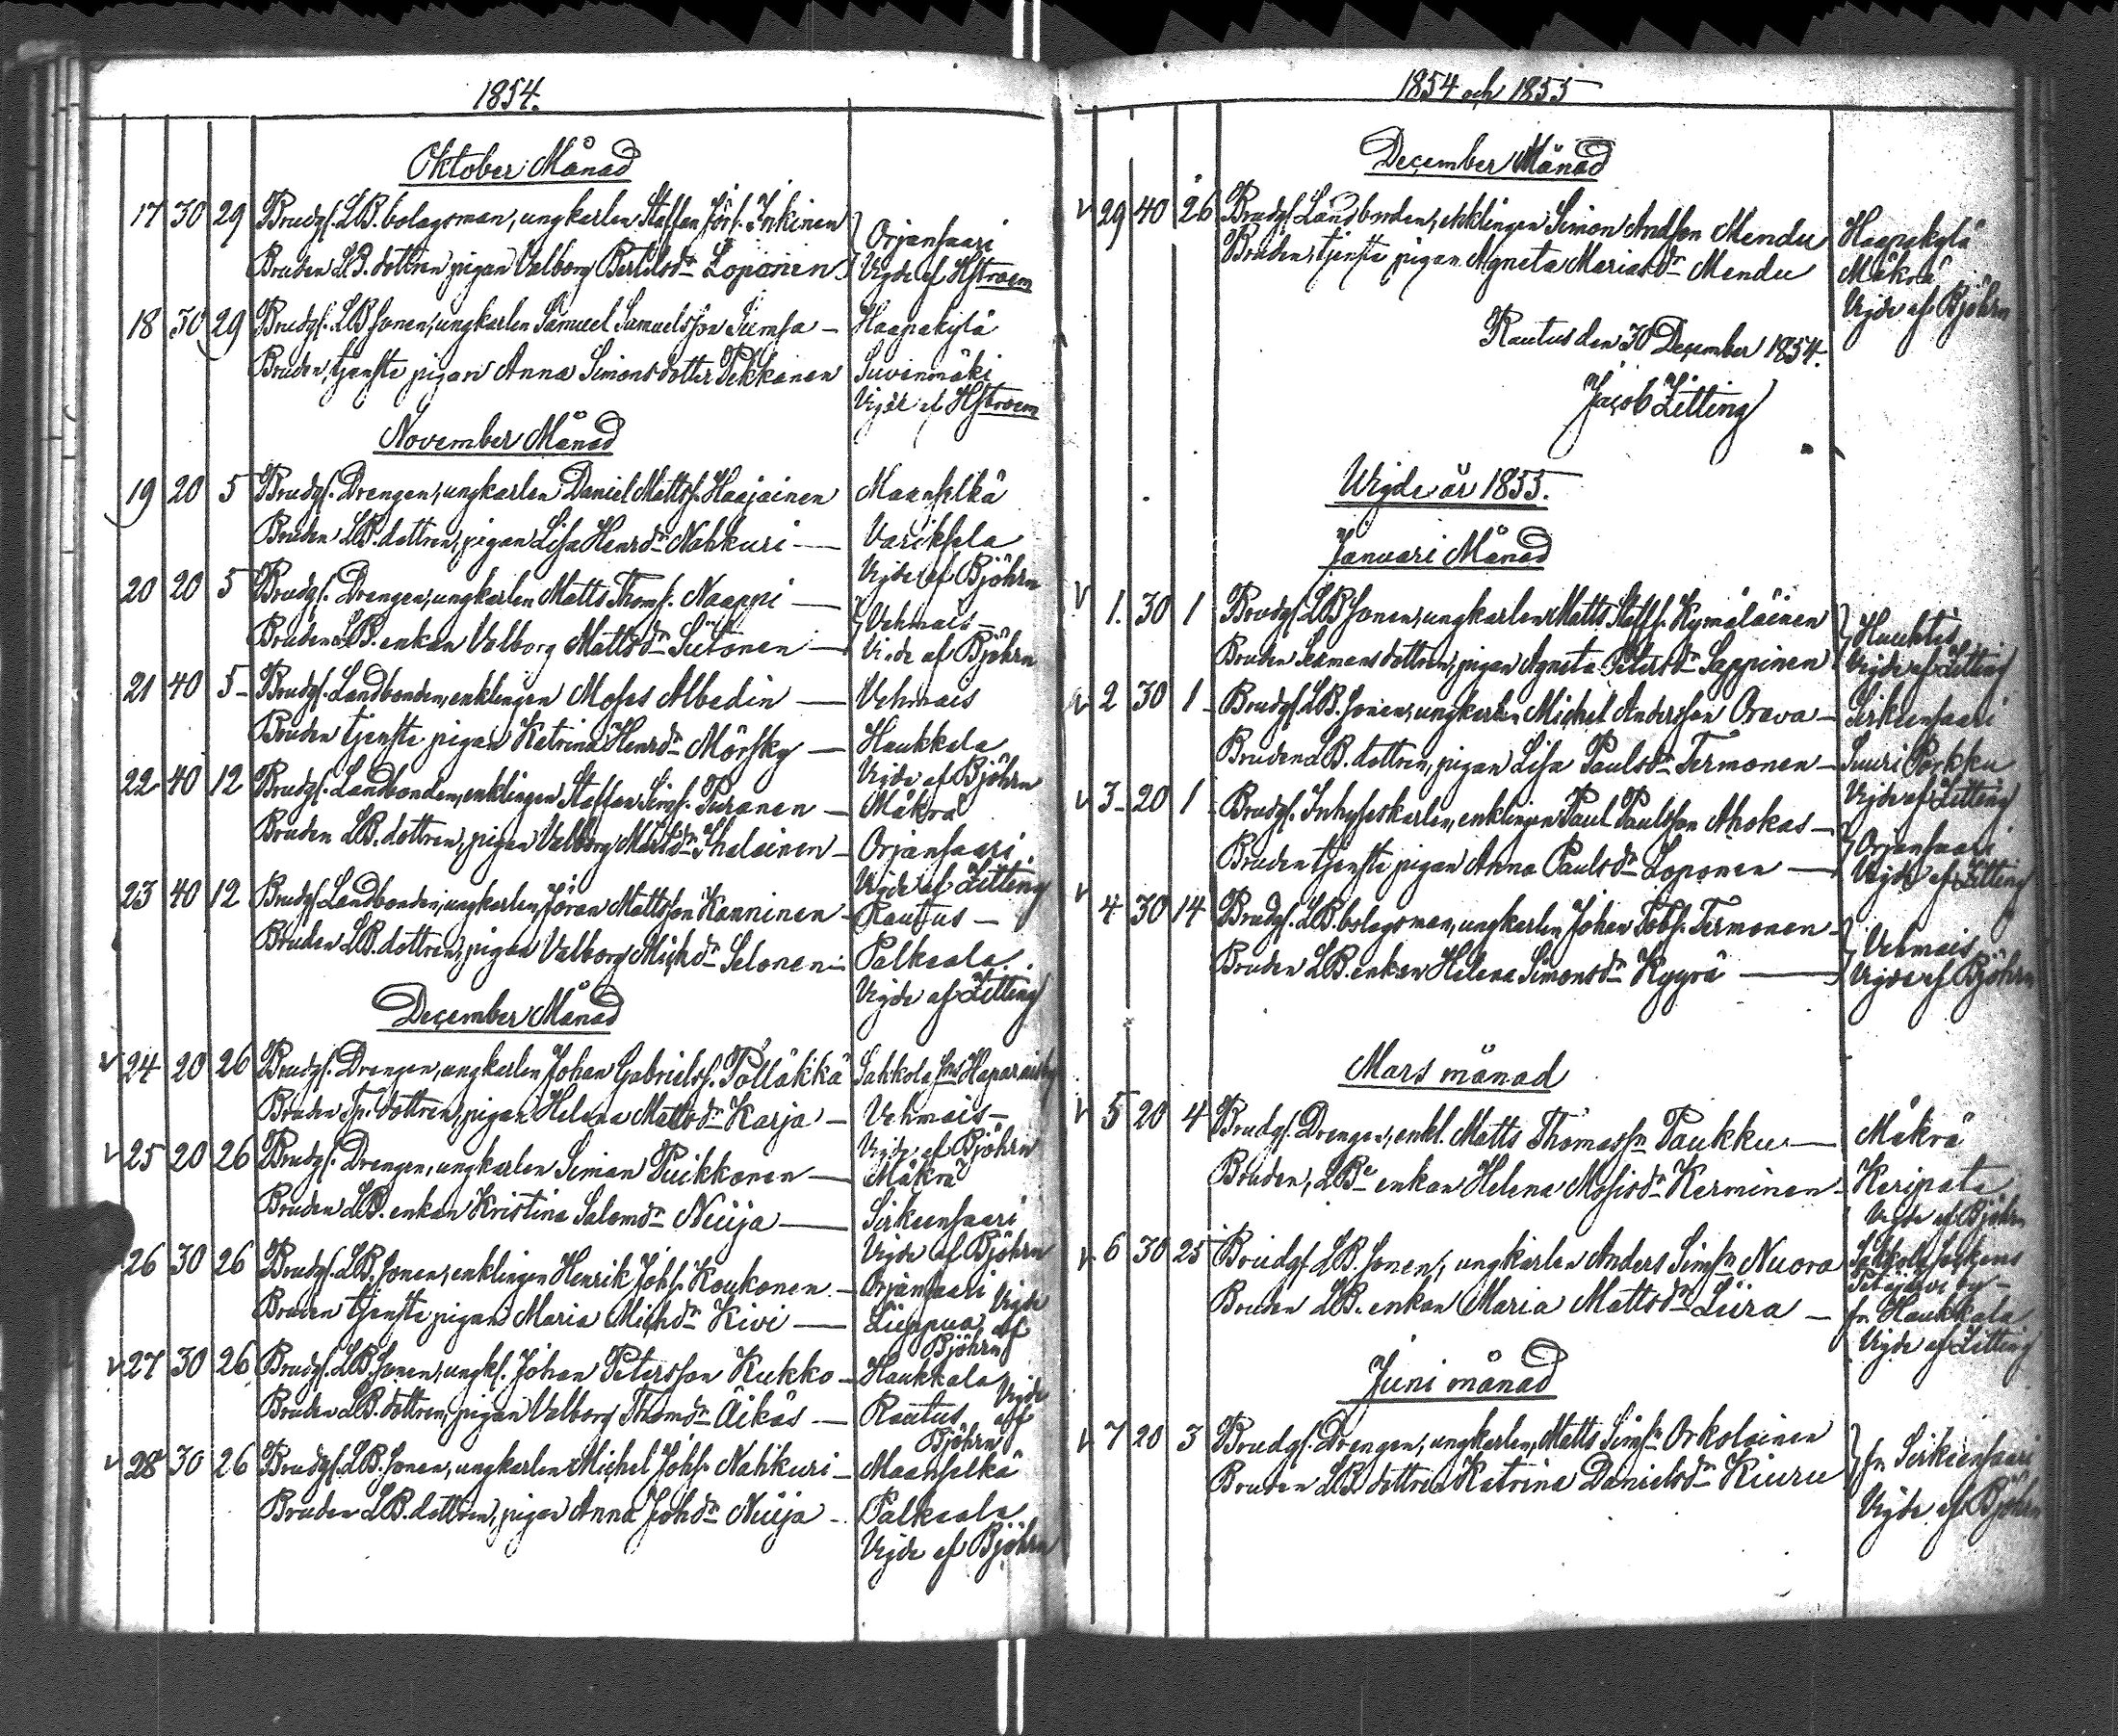 1854.
Oktober Månad
17 30 29 Brudg. LB. bolagsman, ungkarlen Staffan Jörs. Inkinen } Orjansaari
Bruden LB. dottren pigan Valborg Bertelsdr Loponen Vigde af Hstroem
18 30 29 Brudg. LBsonen, ungkarlen Samuel Samuelsson Sumsa – Haapakylä
Bruden, tjenste pigan Anna Simonsdotter Pekkanen Suvenmäki
Vigde af Hstroem
November Månad
19 20 5 Brudg. Drengen, ungkarlen Daniel Mattss. Haajainen Maanselkä
Bruden LB. dottren, pigan Lisa Henrdr Nahkuri – Variksela
Vigde af Björhn
20 20 5 Brudg. Drengen, ungkarlen Matts Thoms. Naappi – } Vehmais –
Bruden LB. enkan Valborg Mattsdr Siitonen – Vigde af Björhn
21 40 5 – Brudg. Landbonden, enklingen Moses Albedin – Vehmais
Bruden tjenste pigan Katrina Henrdr Mörsky – Haukkala
Vigde af Björhn
22 40 12 Brudg. Landbonden, enklingen Staffan Sims. Puranen – Mäkrä
Bruden LB. dottren, pigan Valborg Mårtdr Ihalainen – Orjansaari
Vigde af Zitting
23 40 12 Brudg. Landbonden, ungkarlen Jöran Mattsson Kanninen – Rautus –
Bruden LB. dottren, pigan Valborg Michdr Selonen – Palkeala
Vigde af Zitting
December Månad
24 20 26 Brudg. Drengen, ungkarlen Johan Gabrielss. Pölläkkä Sakkola Sn Haparais by
Bruden Tp. dottren, pigan Helena Mattsdr Karja – Vehmais –
Vigde af Björhn
25 20 26 Brudg. Drengen, ungkarlen Simon Puikkonen – Mäkrä
Bruden LB. enkan Kristina Salomdr Neüja – Sirkeensaari
Vigde af Björhn
26 30 26 Brudg. LB. sonen, enklingen Henrik Johs. Koukonen. – Orjansaari Vigde
Bruden tjenste pigan Maria Michdr Kivi – Liippua af
Björhn
27 30 26 Brudg. LB. sonen, ungk. Johan Petersson Kukko – Haukkala Vigde
Bruden LB. dottren, pigan Valborg Thomdr Äikäs – Rautus af
Björhn
28 30 26 Brudg. LB. sonen, ungkarlen Michel Johs. Nahkuri – Maanselkä
Bruden LB. dottren, pigan Anna Johdr Neüja – Palkeala
Vigde af Björhn
1854 och 1855
December Månad
29 40 26 Brudg. Landbonden, enklingen Simon Andson Mendu Haapakylä
Bruden, tjenste pigan Agneta Mariasdr Mendu Mäkrä
Vigde af Björhn
Rautus den 30 December 1854.
Jacob Zitting
Wigde år 1855.
Januari Månad
1. 30 1 Brudg. LBsonen, ungkarlen Matts Staffs. Kymäläinen } Huuhti
Bruden Sexmansdottren, pigan Agneta Petersdr Lappinen Vigde af Zitting
2 30 1 – Brudg. LB. sonen, ungkarlen Michel Andersson Orava – Sirkeensaari
Bruden LB. dottren, pigan Lisa Paulsdr Termonen – Suuri Porkku
Vigde af Zitting
3 – 20 1 – Brudg. Inhyseskarlen, enklingen Paul Paulsson Ahokas – } Orjansaari
Bruden tjenste pigan Anna Paulsdr Loponen – Vigde af Zitting
4 30 14 Brudg. LB bolagsman, ungkarlen Johan Tobs. Termonen – } Vehmais
Bruden LB. enkan Helena Simonsdr Kyyrä – Vigde af Björhn
Mars månad
5 20 4 Brudg. Drengen, enkl. Matts Thomassn Paukku – Mäkrä
Bruden, LB. enkan Helena Mosisdr Kerminen – Keripata
Vigde af Björhn
6 30 25 Brudg. LB. sonen, ungkarlen Anders Simsn Nuora Sakkola Sockens
Petäjärvi by –
Bruden LB. enkan Maria Mattsdr Liira – fr. Haukkala
Vigde af Zitting
Juni månad
7 20 3 Brudg. Drengen, ungkarlen, Matts Simsn Orkolainen } fr. Sirkeensaari
Bruden LB. dottren Katrina Danielsdr Kiuru
Vigde af Björhn